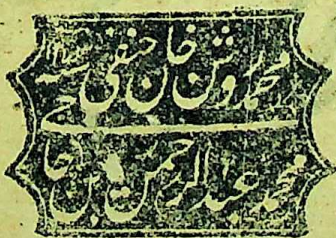 محمد روشن خان حنفی
محمد عبد الرحمن بن حا جی